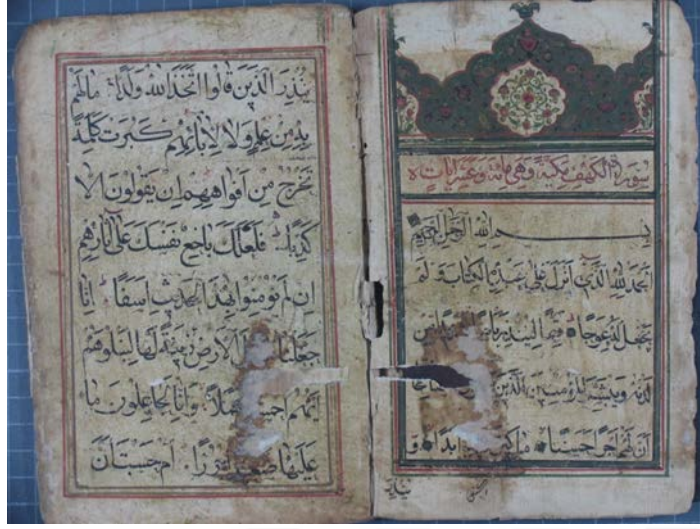 سورة الكهف مكية وهى مائة وعشر ايات
بسم الله الرحمن الرحيم
اَلْحَمْدُ لِلّٰهِ الَّذٖى اَنْزَلَ عَلٰى عَبْدِهِ الْكِتَابَ وَلَمْ
يَجْعَلْ لَهُ عِوَجًا قَيِّمًا لِيُنْذِرَ بَاْسًا مِنْ
لَدُنْهُ وَيُبَشِّرَ الْمُؤْمِنٖينَ الَّذٖينَ
اَنَّ لَهُمْ اَجْرًا حَسَنًا اَبَدًا وَ
ينذر
يُنْذِرَ الَّذٖينَ قَالُوا اتَّخَذَ اللّٰهُ وَلَدًا مَا لَهُمْ
بِهٖ مِنْ عِلْمٍ وَلَا لِاٰبَائِهِمْ كَبُرَتْ كَلِمَةً
تَخْرُجُ مِنْ اَفْوَاهِهِمْ اِنْ يَقُولُونَ اِلَّا
كَذِبًا فَلَعَلَّكَ بَاخِعٌ نَفْسَكَ عَلٰى اٰثَارِهِمْ
اِنْ لَمْ يُؤْمِنُوا بِهٰذَا الْحَدٖيثِ اَسَفًا اِنَّا
جَعَلْنَا الْاَرْضِ زٖينَةً لَهَا لِنَبْلُوَهُمْ
اَيُّهُمْ اَحْسَنُ عَمَلًا وَاِنَّا لَجَاعِلُونَ مَا
عَلَيْهَا جُرُزًا اَمْ حَسِبْتَ اَنَّ